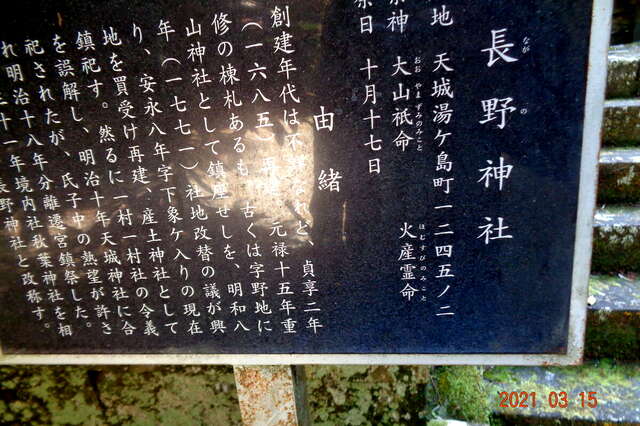 長野神社
ながの
地 天城湯ケ島町一二四五ノ二
神 大山祇命 火産霊命
おおやまずみのみこと ほむすびのみこと
日 十月十七日
由緒
創建年代は不 なれど、貞享二年
(一六八五)再 元禄十五年重
修の棟札あるも、古くは字野地に
山神社として鎮座せしを、明和八
年(一七七一)社地改替の議が興
り、安永八年字下象ケ入りの現在
地を買受け再建、産土神社として
鎮祀す。然るに一村一村社の令義
を誤解し、明治十年天城神社に合
祀されたが、氏子中の熱望が許さ
れ明治十八年分離遷宮鎮祭した。
三十一年境内社秋葉神社を相
長野神社と改称す。
2021 03 15